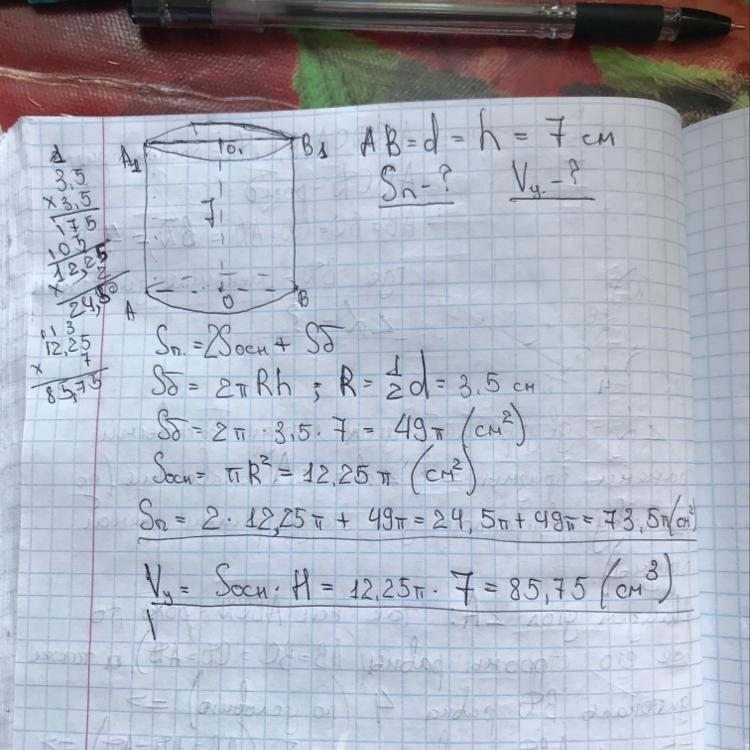 1
3,5
×3,5
175
105
12,25
× 2
24,50
1 3
12,25
× 7
85,75
A₁ O₁ B₁
7
A O B
AB = d = h = 7 см
Sп - ? Vц. - ?
Sп. = 2Sосн + Sб
Sб = 2πRh ; R = 1/2 d = 3.5 см
Sб = 2π · 3,5 · 7 = 49π (см²)
Sосн = πR² = 12,25 π (см²)
Sп = 2 · 12,25π + 49π = 24,5π + 49π = 73,5π (см²)
Vц = Sосн · H = 12,25π · 7 = 85,75 (см³)